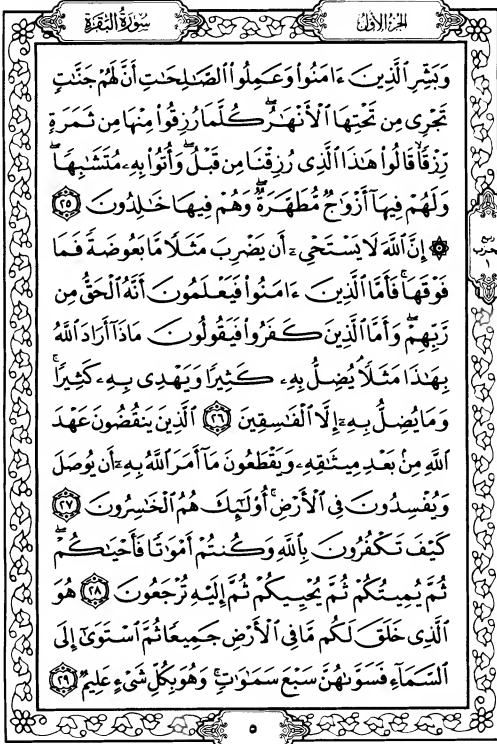 الجزء الأول
سورة البقرة
وَبَشِّرِ الَّذِينَ ءَامَنُوا۟ وَعَمِلُوا۟ الصَّٰلِحَٰتِ أَنَّ لَهُمْ جَنَّٰتٍ
تَجْرِى مِن تَحْتِهَا الْأَنْهَٰرُ ۖ كُلَّمَا رُزِقُوا۟ مِنْهَا مِن ثَمَرَةٍ
رِّزْقًا ۙ قَالُوا۟ هَٰذَا الَّذِى رُزِقْنَا مِن قَبْلُ ۖ وَأُتُوا۟ بِهِۦ مُتَشَٰبِهًا ۖ
وَلَهُمْ فِيهَآ أَزْوَٰجٌ مُّطَهَّرَةٌ ۖ وَهُمْ فِيهَا خَٰلِدُونَ ٢٥
۞ إِنَّ اللَّهَ لَا يَسْتَحْىِۦٓ أَن يَضْرِبَ مَثَلًا مَّا بَعُوضَةً فَمَا
فَوْقَهَا ۚ فَأَمَّا الَّذِينَ ءَامَنُوا۟ فَيَعْلَمُونَ أَنَّهُ الْحَقُّ مِن
رَّبِّهِمْ ۖ وَأَمَّا الَّذِينَ كَفَرُوا۟ فَيَقُولُونَ مَاذَآ أَرَادَ اللَّهُ
بِهَٰذَا مَثَلًا ۘ يُضِلُّ بِهِۦ كَثِيرًا وَيَهْدِى بِهِۦ كَثِيرًا ۚ
وَمَا يُضِلُّ بِهِۦٓ إِلَّا الْفَٰسِقِينَ ٢٦ الَّذِينَ يَنقُضُونَ عَهْدَ
اللَّهِ مِنۢ بَعْدِ مِيثَٰقِهِۦ وَيَقْطَعُونَ مَآ أَمَرَ اللَّهُ بِهِۦٓ أَن يُوصَلَ
وَيُفْسِدُونَ فِى الْأَرْضِ ۚ أُو۟لَٰٓئِكَ هُمُ الْخَٰسِرُونَ ٢٧
كَيْفَ تَكْفُرُونَ بِاللَّهِ وَكُنتُمْ أَمْوَٰتًا فَأَحْيَٰكُمْ ۖ
ثُمَّ يُمِيتُكُمْ ثُمَّ يُحْيِيكُمْ ثُمَّ إِلَيْهِ تُرْجَعُونَ ٢٨ هُوَ
الَّذِى خَلَقَ لَكُم مَّا فِى الْأَرْضِ جَمِيعًا ثُمَّ اسْتَوَىٰٓ إِلَى
السَّمَآءِ فَسَوَّىٰهُنَّ سَبْعَ سَمَٰوَٰتٍ ۚ وَهُوَ بِكُلِّ شَىْءٍ عَلِيمٌ ٢٩
ربع
الحزب
١
٥